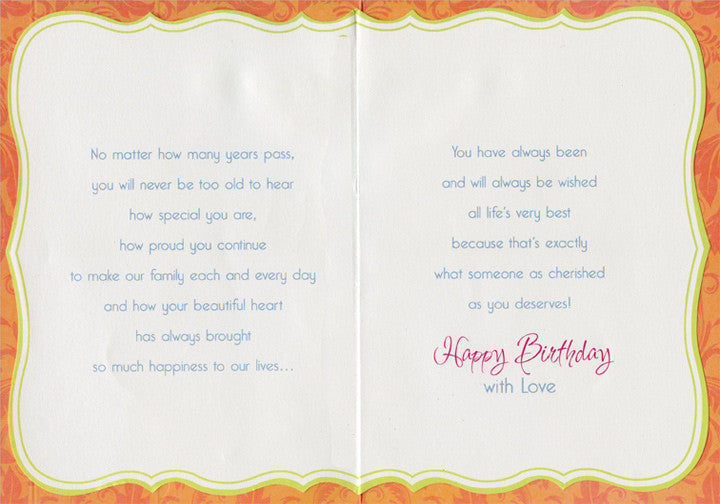 No matter how many years pass,
you will never be too old to hear
how special you are,
how proud you continue
to make our family each and every day
and how your beautiful heart
has always brought
so much happiness to our lives...
You have always been
and will always be wished
all life's very best
because that's exactly
what someone as cherished
as you deserves!
Happy Birthday
with Love